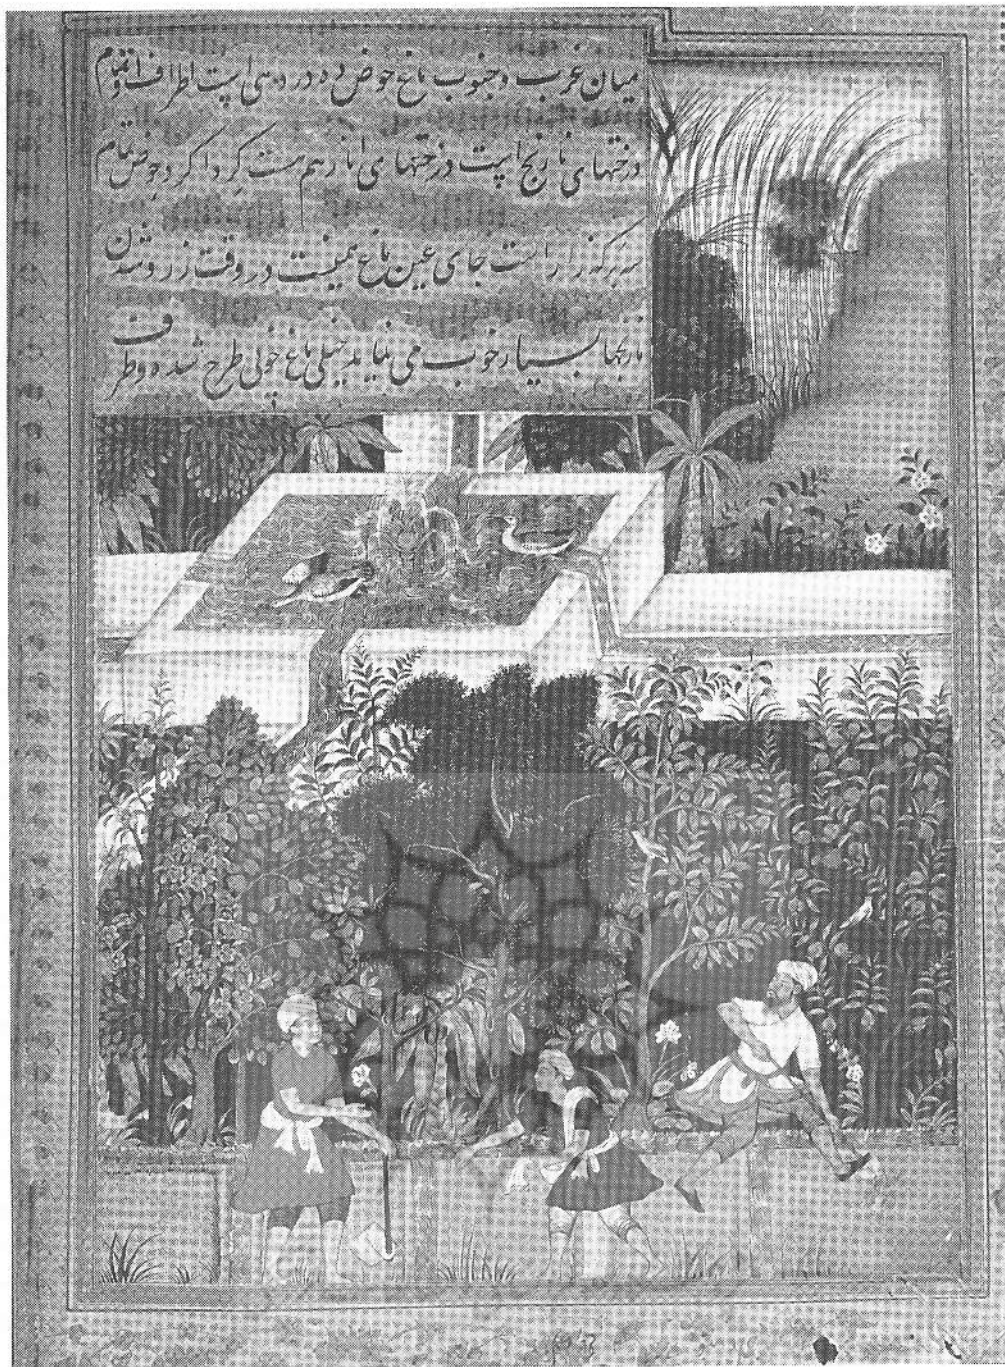 میان غرب و جنوب باغ حوض ده در ده سی است اطراف او تمام
درختهای نارنج است درختهای انار هم هست گرداگرد حوض تمام
سه برگه زار است جای عین باغ همینست در وقت زرد شدن
نارنجها بسیار خوب می نماید خیلی باغ خوبی طرح شده و طرف